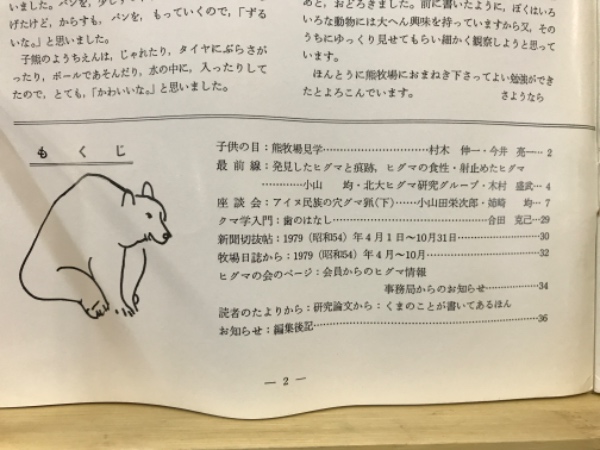 いました。パンを、少しず
げたけど、からすも、パンを、もっていくので、「ずる
いな。」と思いました。
子熊のようちえんは、じゃれたり、タイヤにぶらさが
ったり、ボールであそんだり、水の中に、入ったりして
たので、とても、「かわいいな。」と思いました。
あと、おどろきました。前に書いたように、ぼくはいろ
いろな動物には大へん興味を持っていますから又、その
うちにゆっくり見せてもらい細かく観察しようと思って
います。
ほんとうに熊牧場におまねき下さってよい勉強ができ
たとよろこんでいます。 さようなら
もくじ
子供の目：熊牧場見学……………………村木 伸一・今井 亮一… 2
最前線：発見したヒグマと痕跡，ヒグマの食性・射止めたヒグマ
…………小山 均・北大ヒグマ研究グループ・木村 盛武… 4
座談会：アイヌ民族の穴グマ猟(下)……小山田栄次郎・姉崎 均… 7
クマ学入門：歯のはなし……………………………合田 克己…29
新聞切抜帖：1979（昭和54）年4月1日～10月31日……………………30
牧場日誌から：1979（昭和54）年4月～10月……………………32
ヒグマの会のページ：会員からのヒグマ情報
事務局からのお知らせ……………34
読者のたよりから：研究論文から：くまのことが書いてあるほん
お知らせ：編集後記……………………………………36
— 2 —